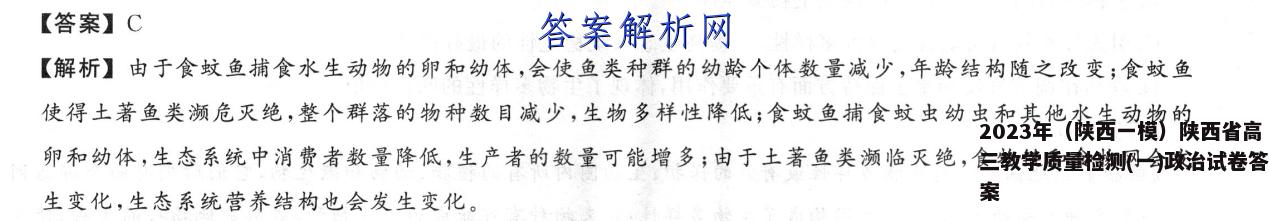 【答案】C
答案解析网
【解析】由于食蚊鱼捕食水生动物的卵和幼体,会使鱼类种群的幼龄个体数量减少,年龄结构随之改变;食蚊鱼
使得土著鱼类濒危灭绝,整个群落的物种数目减少,生物多样性降低;食蚊鱼捕食蚊虫幼虫和其他水生动物的
卵和幼体,生态系统中消费者数量降低,生产者的数量可能增多;由于土著鱼类濒临灭绝,
生变化,生态系统营养结构也会发生变化。
2023年（陕西一模）陕西省高
三教学质量检测(一)政治试卷答
案